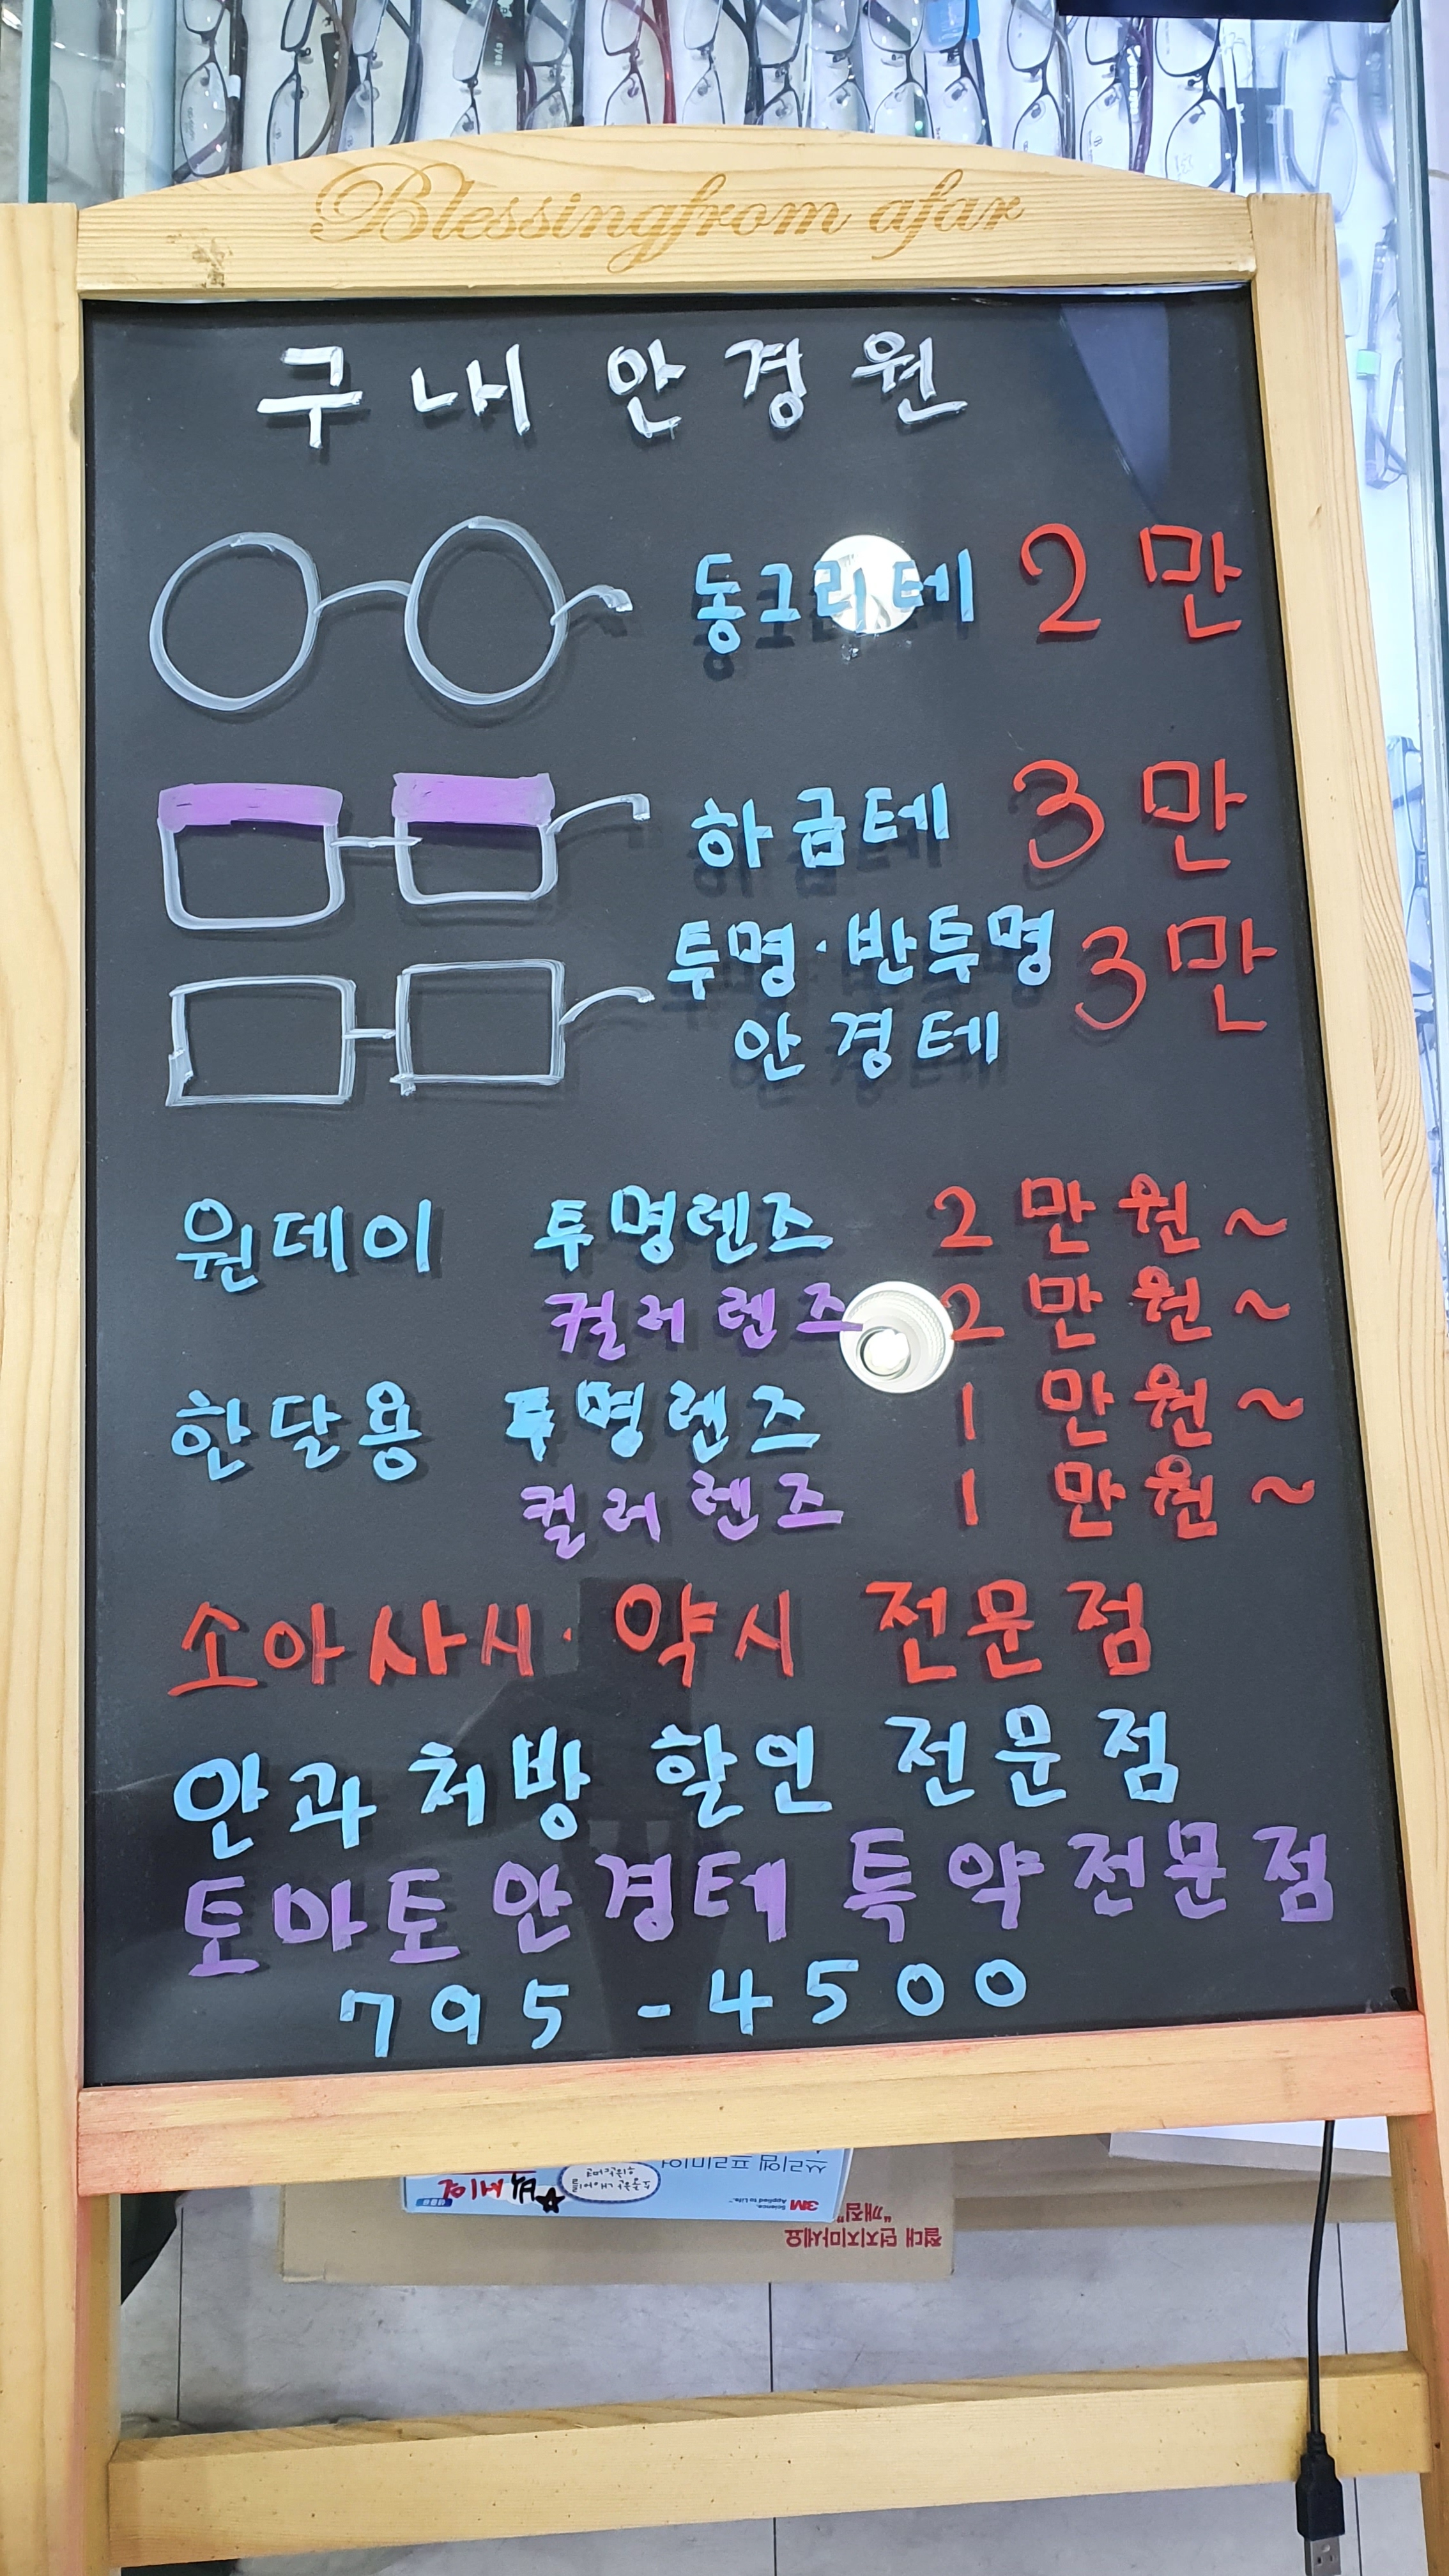 Blessingfrom afar
구내 안경원
동그리테 2만
하금테 3만
투명·반투명 3만
안경테
원데이 투명렌즈 2만원~
컬러렌즈 2만원~
한달용 투명렌즈 1만원~
컬러렌즈 1만원~
소아사시·약시 전문점
안과처방 할인 전문점
토마토안경테 특약전문점
795-4500
쓰리엠 프리미엄
3M Science.
Applied to Life.™
"깨짐"
절대 던지지마세요